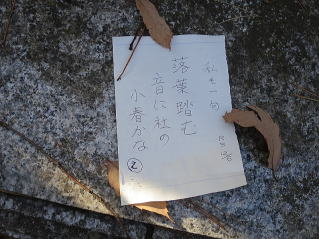 私も一句
落葉踏む
音に社の
小春かな
②